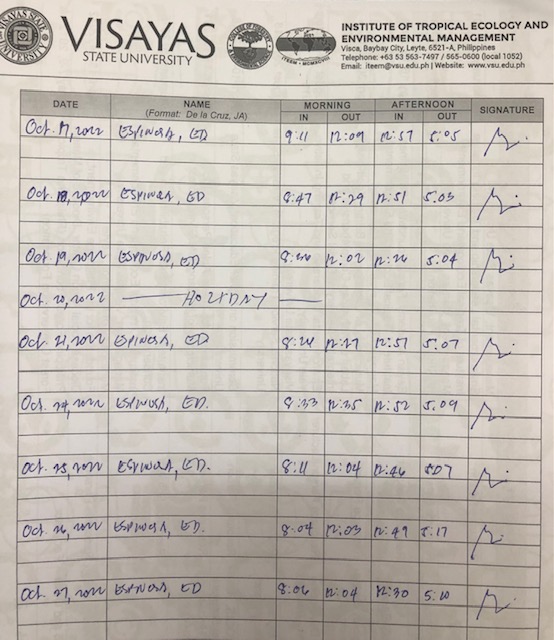 VISAYAS
STATE UNIVERSITY
INSTITUTE OF TROPICAL ECOLOGY AND
ENVIRONMENTAL MANAGEMENT
Visca, Baybay City, Leyte, 6521-A, Philippines
Telephone: +63 53 563-7497 / 565-0600 (local 1052)
Email: iteem@vsu.edu.ph | Website: www.vsu.edu.ph
DATE NAME (Format: De la Cruz, JA) MORNING IN OUT AFTERNOON IN OUT SIGNATURE
Oct. 17, 2022 ESPINOSA, ED 9:11 12:09 12:57 5:05
Oct. 18, 2022 ESPINOSA, ED 8:47 12:29 12:51 5:03
Oct. 19, 2022 ESPINOSA, ED 12:02 12:26 5:04
Oct. 20, 2022 HOLIDAY
Oct. 21, 2022 ESPINOSA, ED 8:24 12:27 12:57 5:07
Oct. 24, 2022 ESPINOSA, ED. 8:33 12:35 12:52 5:09
Oct. 25, 2022 ESPINOSA, ED. 8:11 12:04 12:46 5:07
Oct. 26, 2022 ESPINOSA, ED. 8:04 12:03 12:49 5:17
Oct. 27, 2022 ESPINOSA, ED 8:06 12:04 12:30 5:10